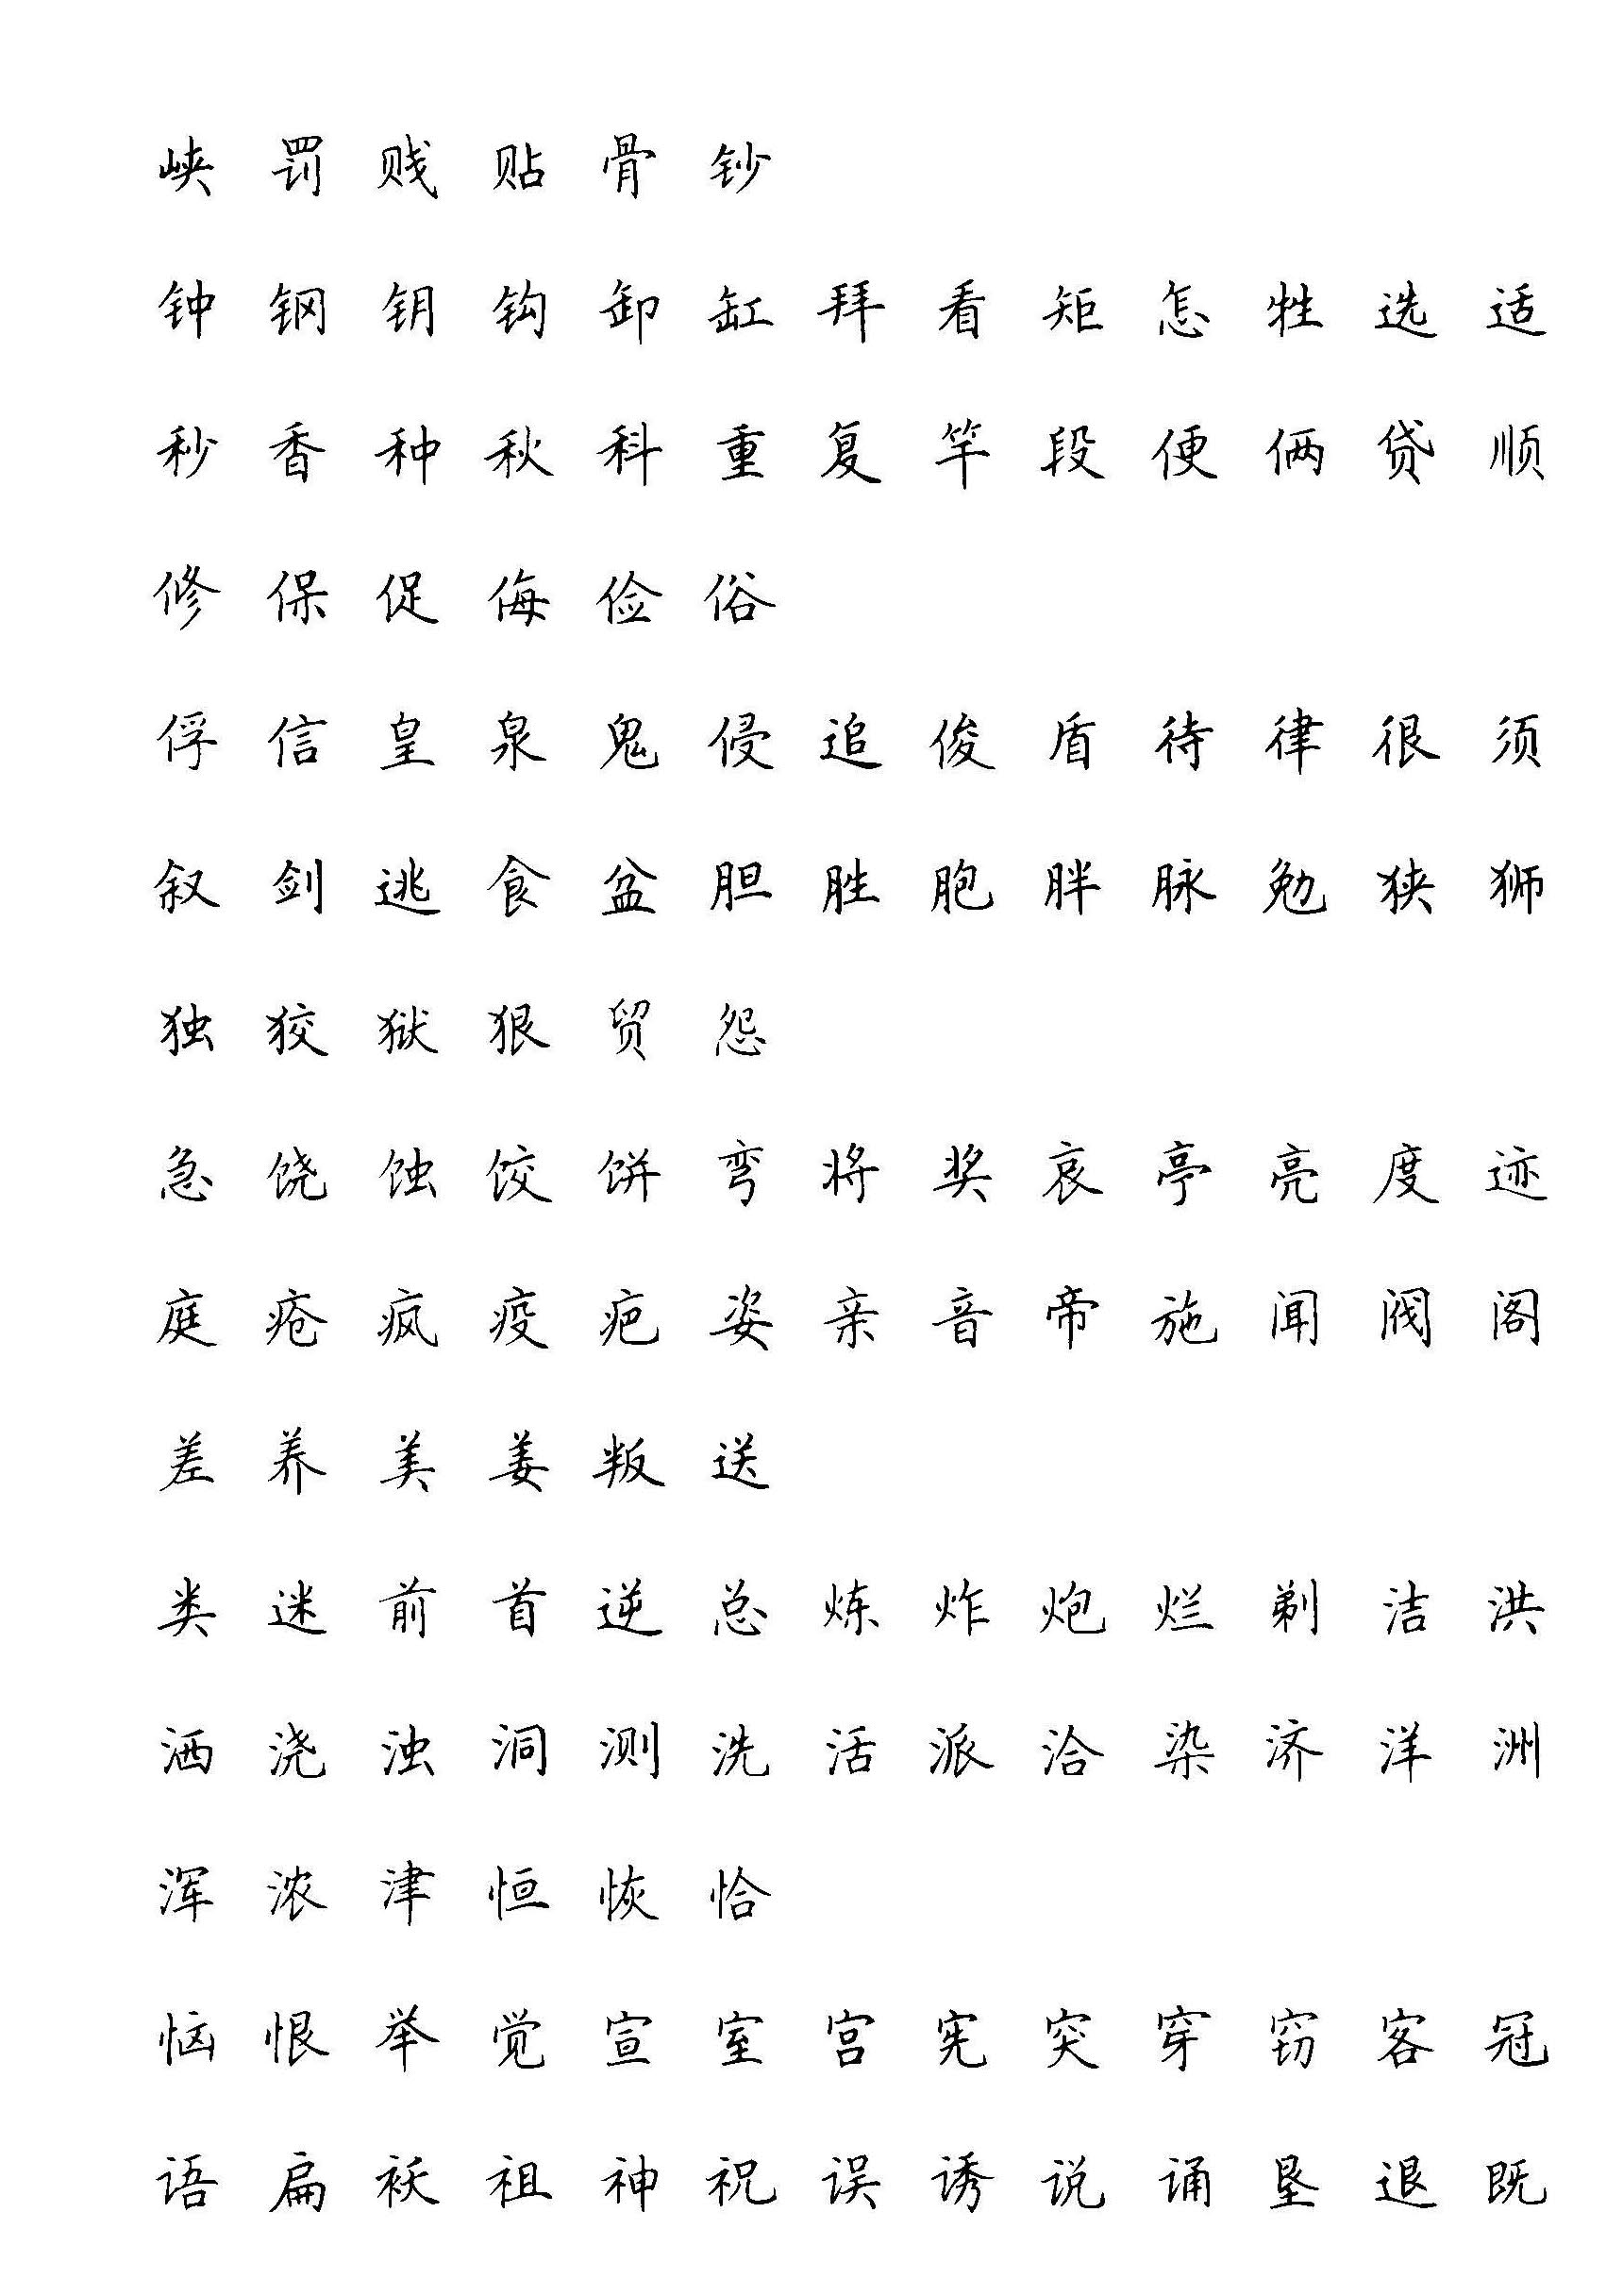 峡 罚 贱 贴 骨 钞
钟 钢 钥 钩 卸 缸 拜 看 矩 怎 牲 选 适
秒 香 种 秋 科 重 复 竿 段 便 俩 贷 顺
修 保 促 侮 俭 俗
俘 信 皇 泉 鬼 侵 追 俊 盾 待 律 很 须
叙 剑 逃 食 盆 胆 胜 胞 胖 脉 勉 狭 狮
独 狡 狱 狠 贸 怨
急 饶 蚀 饺 饼 弯 将 奖 哀 亭 亮 度 迹
庭 疮 疯 疫 疤 姿 亲 音 帝 施 闻 阀 阁
差 养 美 姜 叛 送
类 迷 前 首 逆 总 炼 炸 炮 烂 剃 洁 洪
洒 浇 浊 洞 测 洗 活 派 洽 染 济 洋 洲
浑 浓 津 恒 恢 恰
恼 恨 举 觉 宣 室 宫 宪 突 穿 窃 客 冠
语 扁 袄 祖 神 祝 误 诱 说 诵 垦 退 既